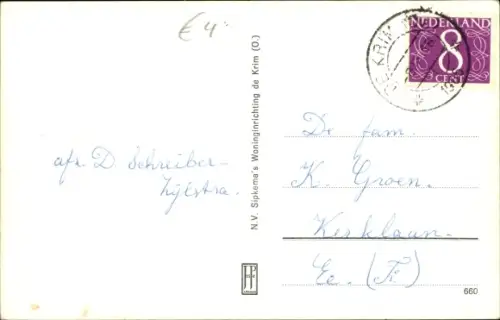 € 4
DE KRIM
NEDERLAND
8
CENT
De fam.
afz. D. Schreiber-
K. Groen.
Zijlstra.
Kerklaan.
Ee. (Fr)
N.V. Sipkema's Woninginrichting de Krim (O.)
660